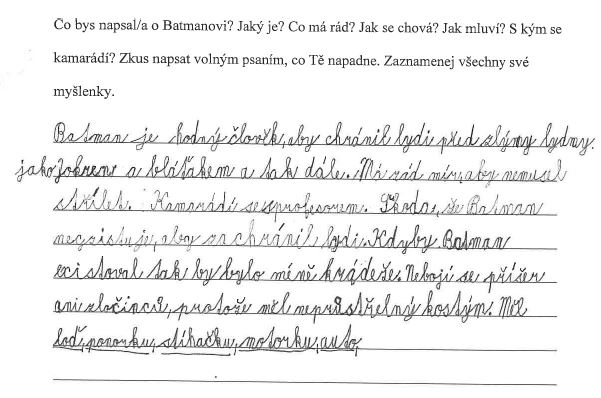 Co bys napsal/a o Batmanovi? Jaký je? Co má rád? Jak se chová? Jak mluví? S kým se
kamarádí? Zkus napsat volným psaním, co Tě napadne. Zaznamenej všechny své
myšlenky.
Batman je hodný člověk, aby chránil lydi před zlýmy lydmy.
jako Jokrem a bláťákem a tak dále. Má rád mír, aby nemusel
střílet. Kamarádí se sprofesorem. Škoda, že Batman
negzistuje, aby zachránil lydi. Kdyby Batman
existoval tak by bylo méně krádeže. Nebojí se příšer
ani zločinců, protože měl neprůstřelný kostým. Měl
loď, ponorku, stíhačku, motorku, auto,